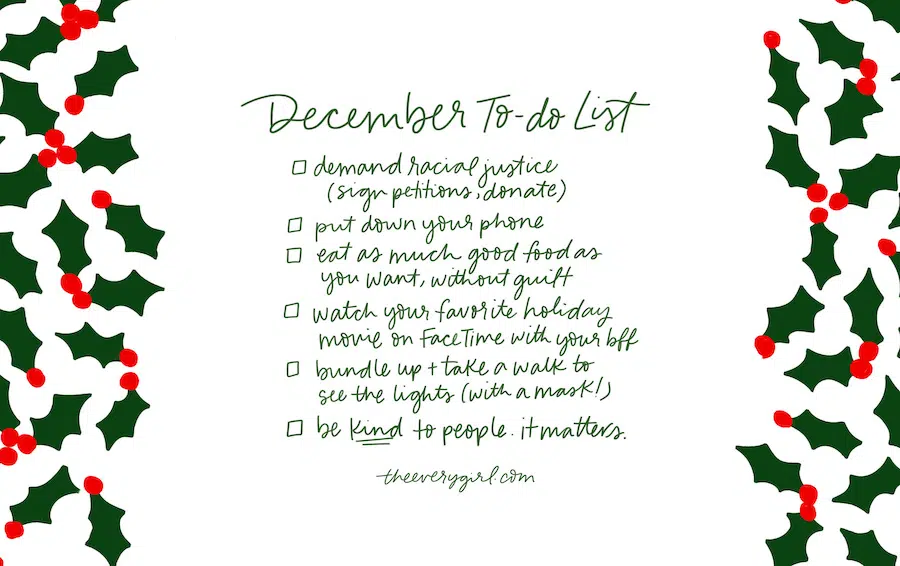 December To-do List
demand racial justice
(sign petitions, donate)
put down your phone
eat as much good food as
you want, without guilt
watch your favorite holiday
movie on FaceTime with your bff
bundle up + take a walk to
see the lights (with a mask!)
be kind to people. it matters.
theeverygirl.com